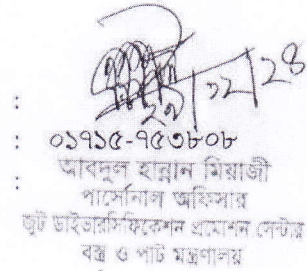 ২৭/১২/২৪
:
: ০১৭১৫-৭৫৩৮০৮
: আবদুল হান্নান মিয়াজী
পার্সোনাল অফিসার
জুট ডাইভারসিফিকেশন প্রমোশন সেন্টার
বস্ত্র ও পাট মন্ত্রণালয়